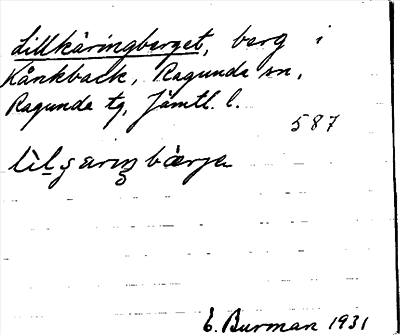 Lillkäringberget, berg i
Kånkback, Ragunda sn,
Ragunda tg, Jämtl. l.
587
E. Burman 1931